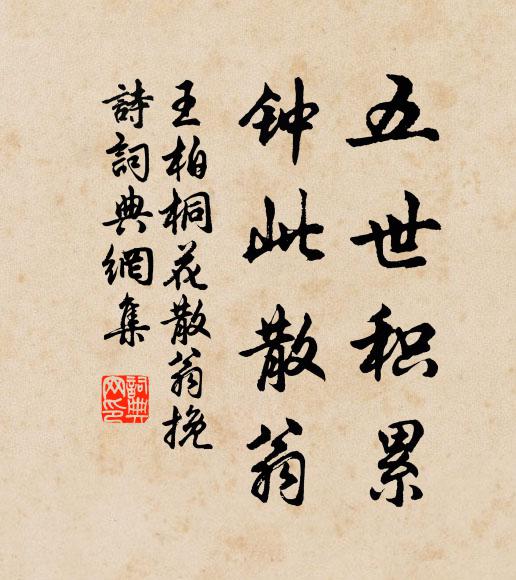 五世积累
钟此散翁
王柏桐花散翁挽
詩詞典網集
詞典网印